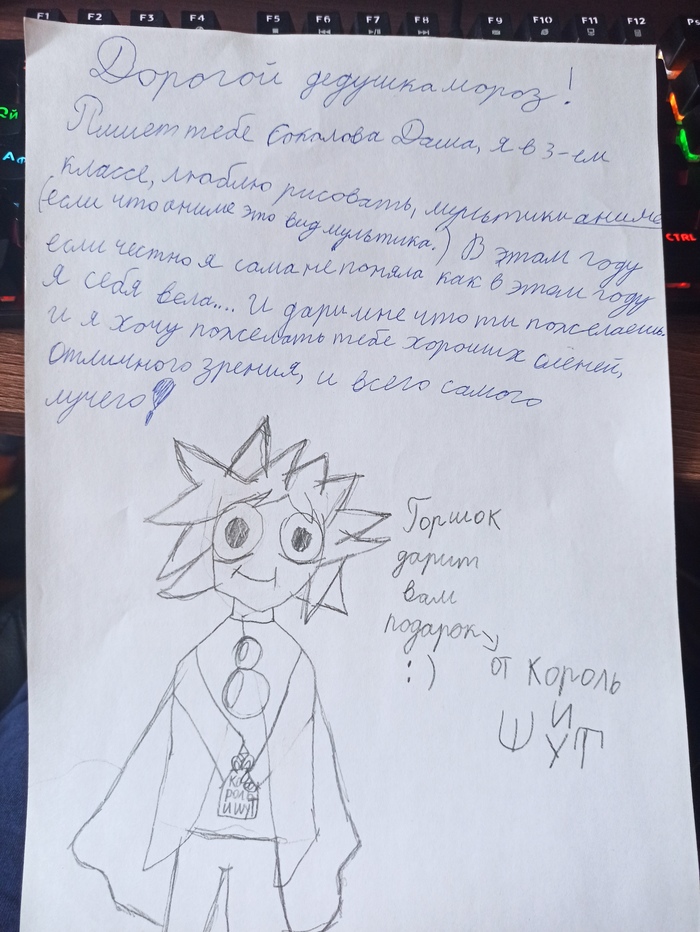 F1 F2 F3 F4 F5 F6 F7 F8 F9 F10 F11 F12
CTRL
Дорогой дедушка мороз!
Пишет тебе Соколова Даша, я в 3-ем
классе, люблю рисовать, мультики аниме
(если что аниме это вид мультика.) В этом году
если честно я сама не поняла как в этом году
я себя вела.... И дари мне что ты пожелаешь.
И я хочу пожелать тебе хороших оленей,
отличного зрения, и всего самого
лучего!
Горшок
дарит
вам
подарок
:)
от Король
И
ШУТ
Ко
роль
и шут